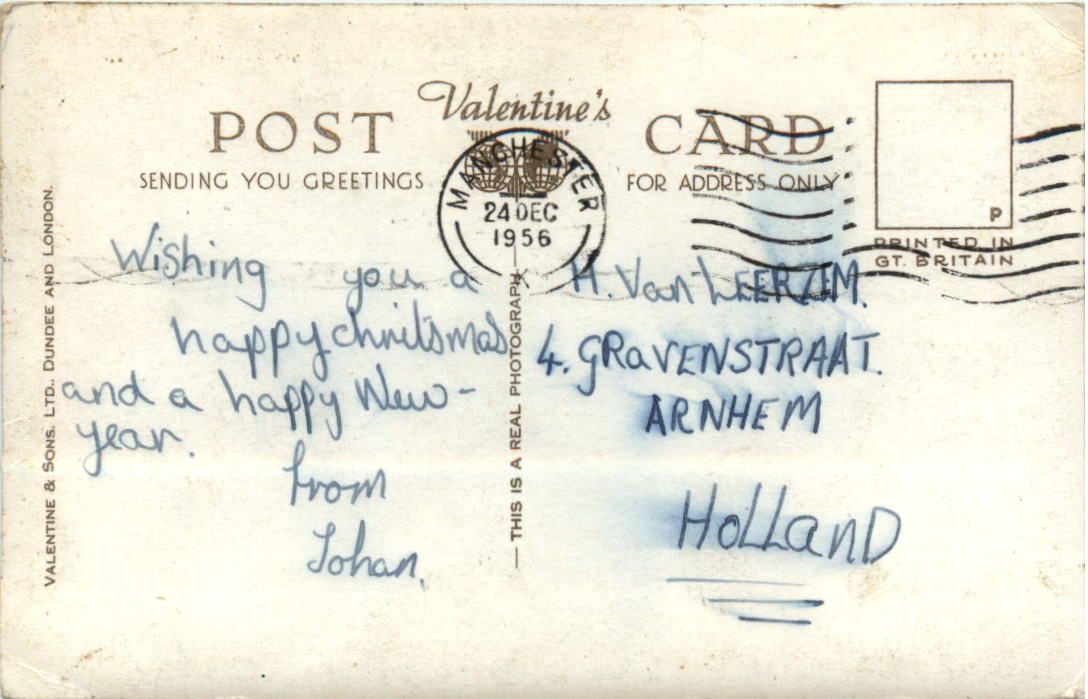 Valentine's
POST CARD
SENDING YOU GREETINGS
FOR ADDRESS ONLY
MANCHESTER
24 DEC
1956
P
PRINTED IN
GT. BRITAIN
VALENTINE & SONS. LTD., DUNDEE AND LONDON.
Wishing you a
happy chritsmas
and a happy New-
year.
from
Johan.
— THIS IS A REAL PHOTOGRAPH —
H. Van LEERZEM.
4. GRAVENSTRAAT.
ARNHEM
HOLLAND